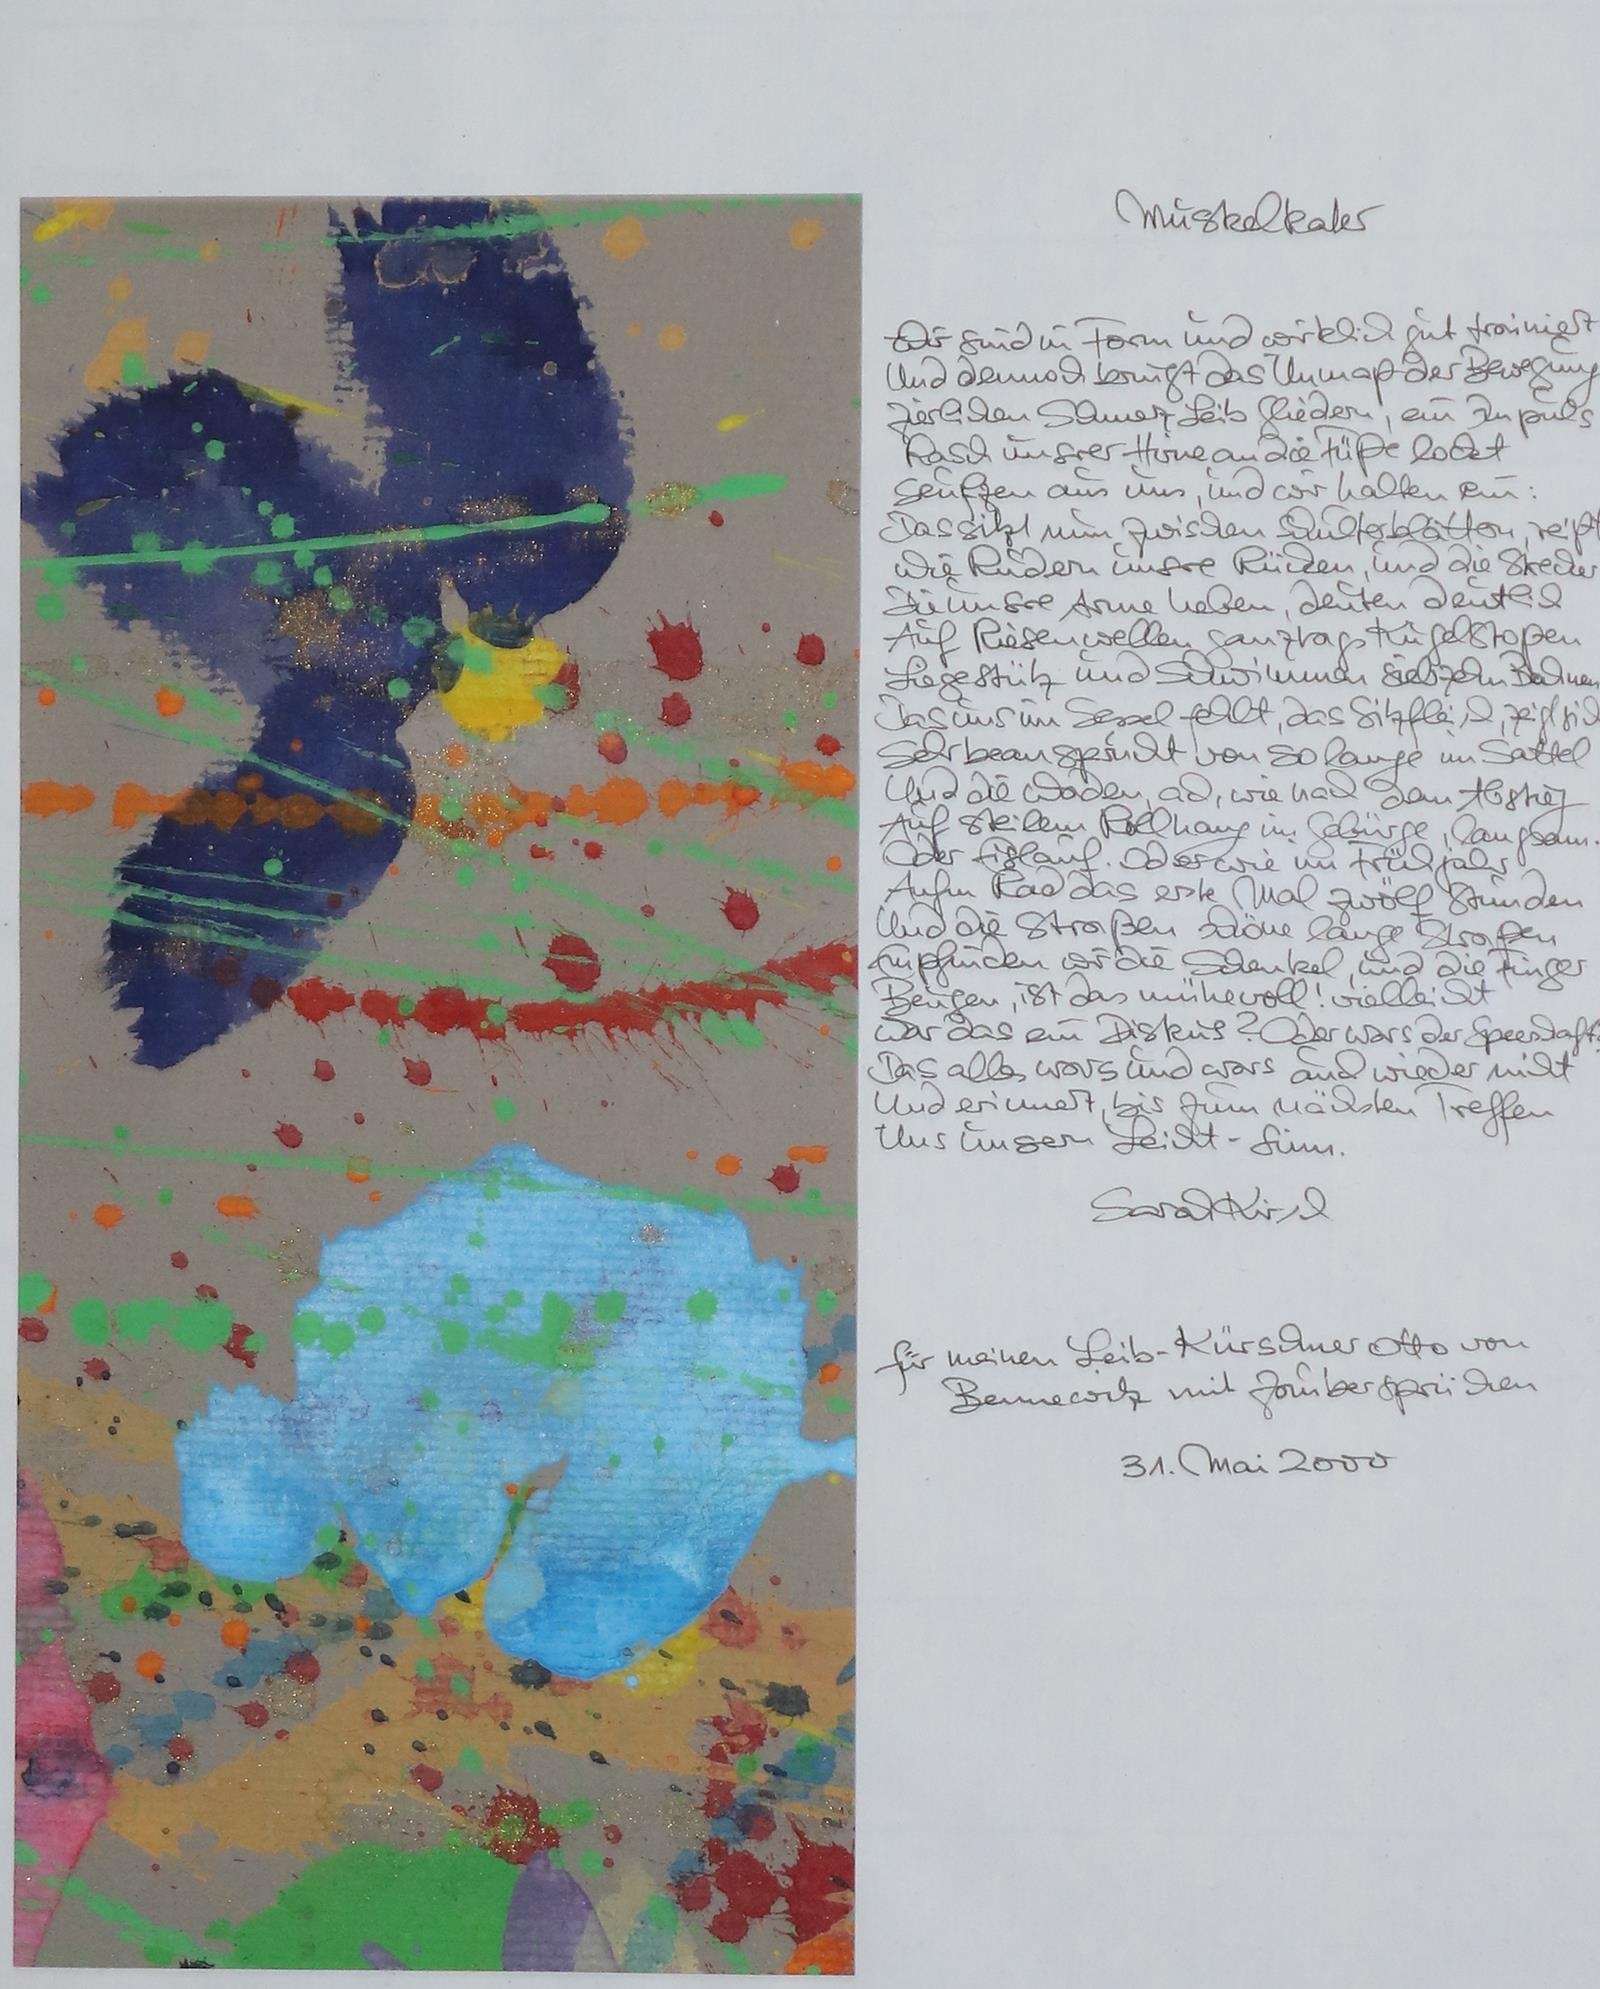 Muskelkater
Wir sind in Form und wirklich gut trainiert
Und dennoch bringt das Unmaß der Bewegung
zierlichen Schmerz Leib Gliedern, ein Impuls
Rasch unsrer Hirne an die Füße lockt
Seufzen aus uns, und wir halten ein:
Das sitzt nun zwischen Schulterblättern, reißt
wie Rudern unsre Rücken, und die Stecher
Die unsre Arme heben, deuten deutlich
Auf Riesenwellen ganztags Kugelstoßen
Liegestütz und Schwimmen siebzehn Bahnen
Das uns im Sessel fehlt, das Sitzfleisch, zeigt sich
Sehr beansprucht von so lange im Sattel
Und die Waden, ach, wie nach dem Abstieg
Auf steilem Rollhang im Gebürge, langsam.
Oder Eislauf. Oder wie im Frühjahr
Aufm Rad das erste Mal zwölf Stunden
Und die Straßen schöne lange Straßen
Empfinden wir die Schenkel, und die Finger
Beugen, ist das mühevoll! vielleicht
war das ein Diskus? Oder wars der Speerschaft?
Das alles wars und wars auch wieder nicht
Und erinnert, bis zum nächsten Treffen
Uns unsern Leicht-sinn.
Sarah Kirsch
für meinen Leib-Kürschner Otto von
Bennewitz mit Zaubersprüchen
31. Mai 2000